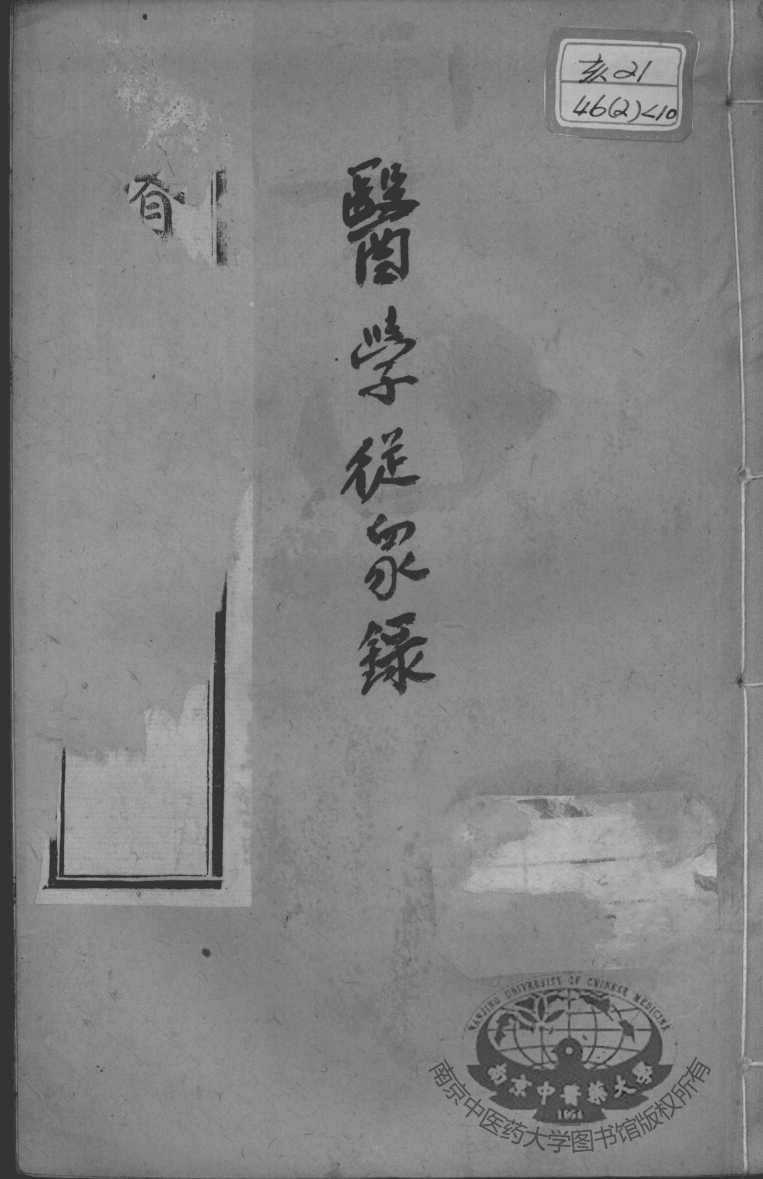 亥21
46(2)<10
醫學從衆錄
NANJING UNIVERSITY OF CHINESE MEDICINE
南京中醫藥大學
1954
南京中医药大学图书馆版权所有